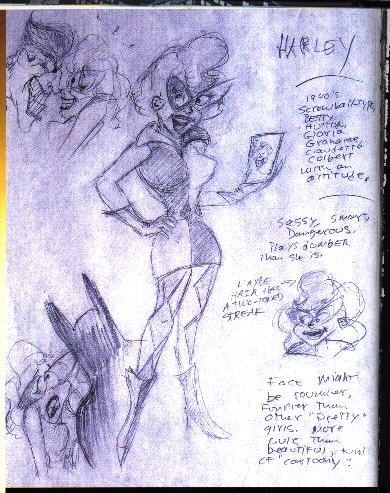 HARLEY
1940's
Screwball type,
BETTY
HUTTON
Gloria
Grahame
Claudette
Colbert
with an
attitude.
Sassy, smart,
Dangerous.
Plays dumber
than she is.
MAYBE
HAIR HAS
A TWO-TONED
STREAK
Face might
be rounder,
funnier than
other "pretty"
girls. More
cute than
beautiful, kind
of "cartoony"